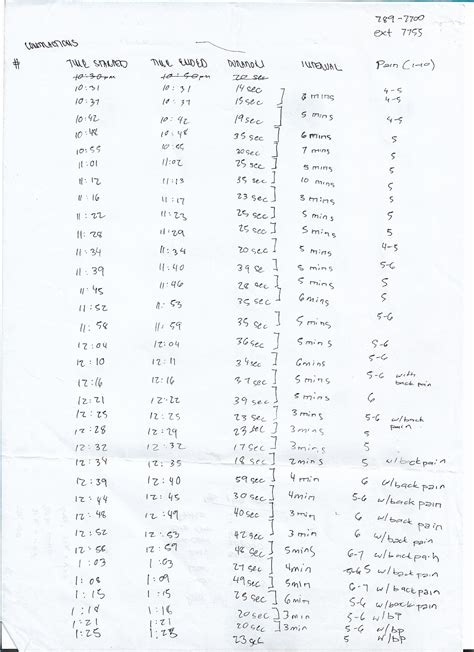 289-7700
ext 7755
contractions
# TIME STARTED TIME ENDED DURATION INTERVAL Pain (1-10)
10:30pm 10:30pm 20 sec
10:31 10:31 14 sec 4-5
10:37 10:37 15 sec 4-5
10:42 10:42 19 sec 5 mins 4-5
10:48 10:48 35 sec 6 mins 5
10:55 10:55 20 sec 7 mins 5
11:01 11:02 25 sec 5 mins 5
11:12 11:13 35 sec 10 mins 5
11:16 11:17 23 sec 3 mins 5
11:22 11:23 25 sec 5 mins 5
11:28 11:29 25 sec 5 mins 5
11:34 11:34 20 sec 5 mins 4-5
11:39 11:40 39 sec 5 mins 5-6
11:45 11:46 28 sec 5 mins 5
11:52 11:53 35 sec 6 mins 5
11:58 11:59 35 sec 5 mins 5-6
12:04 12:04 36 sec 5 mins 5
12:10 12:11 34 sec 6 mins 5-6
12:16 12:16 37 sec 5 mins 5-6 with back pain
12:21 12:22 39 sec 5 mins 6
12:25 12:25 23 sec 3 mins 5-6 w/back pain
12:28 12:29 23 sec 3 mins 5
12:32 12:32 17 sec 3 mins 5
12:34 12:35 18 sec 2 mins 5 w/back pain
12:39 12:40 59 sec 4 min 6 w/back pain
12:44 12:45 30 sec 4 min 5-6 w/back pain
12:48 12:49 40 sec 3 min 6 w/back pain
12:52 12:53 42 sec 4 min 6 w/back pain
12:56 12:57 48 sec 5 mins 6-7 w/back pain
1:03 1:03 27 sec 4 min 5 w/back pain
1:08 1:09 49 sec 5 min 6-7 w/back pain
1:15 1:15 25 sec 6 min 5 w/back pain
1:18 1:18 20 sec 3 min 6 w/back pain
1:21 1:21 20 sec 3 min 5 w/bp
1:25 1:25 23 sec 5 w/bp